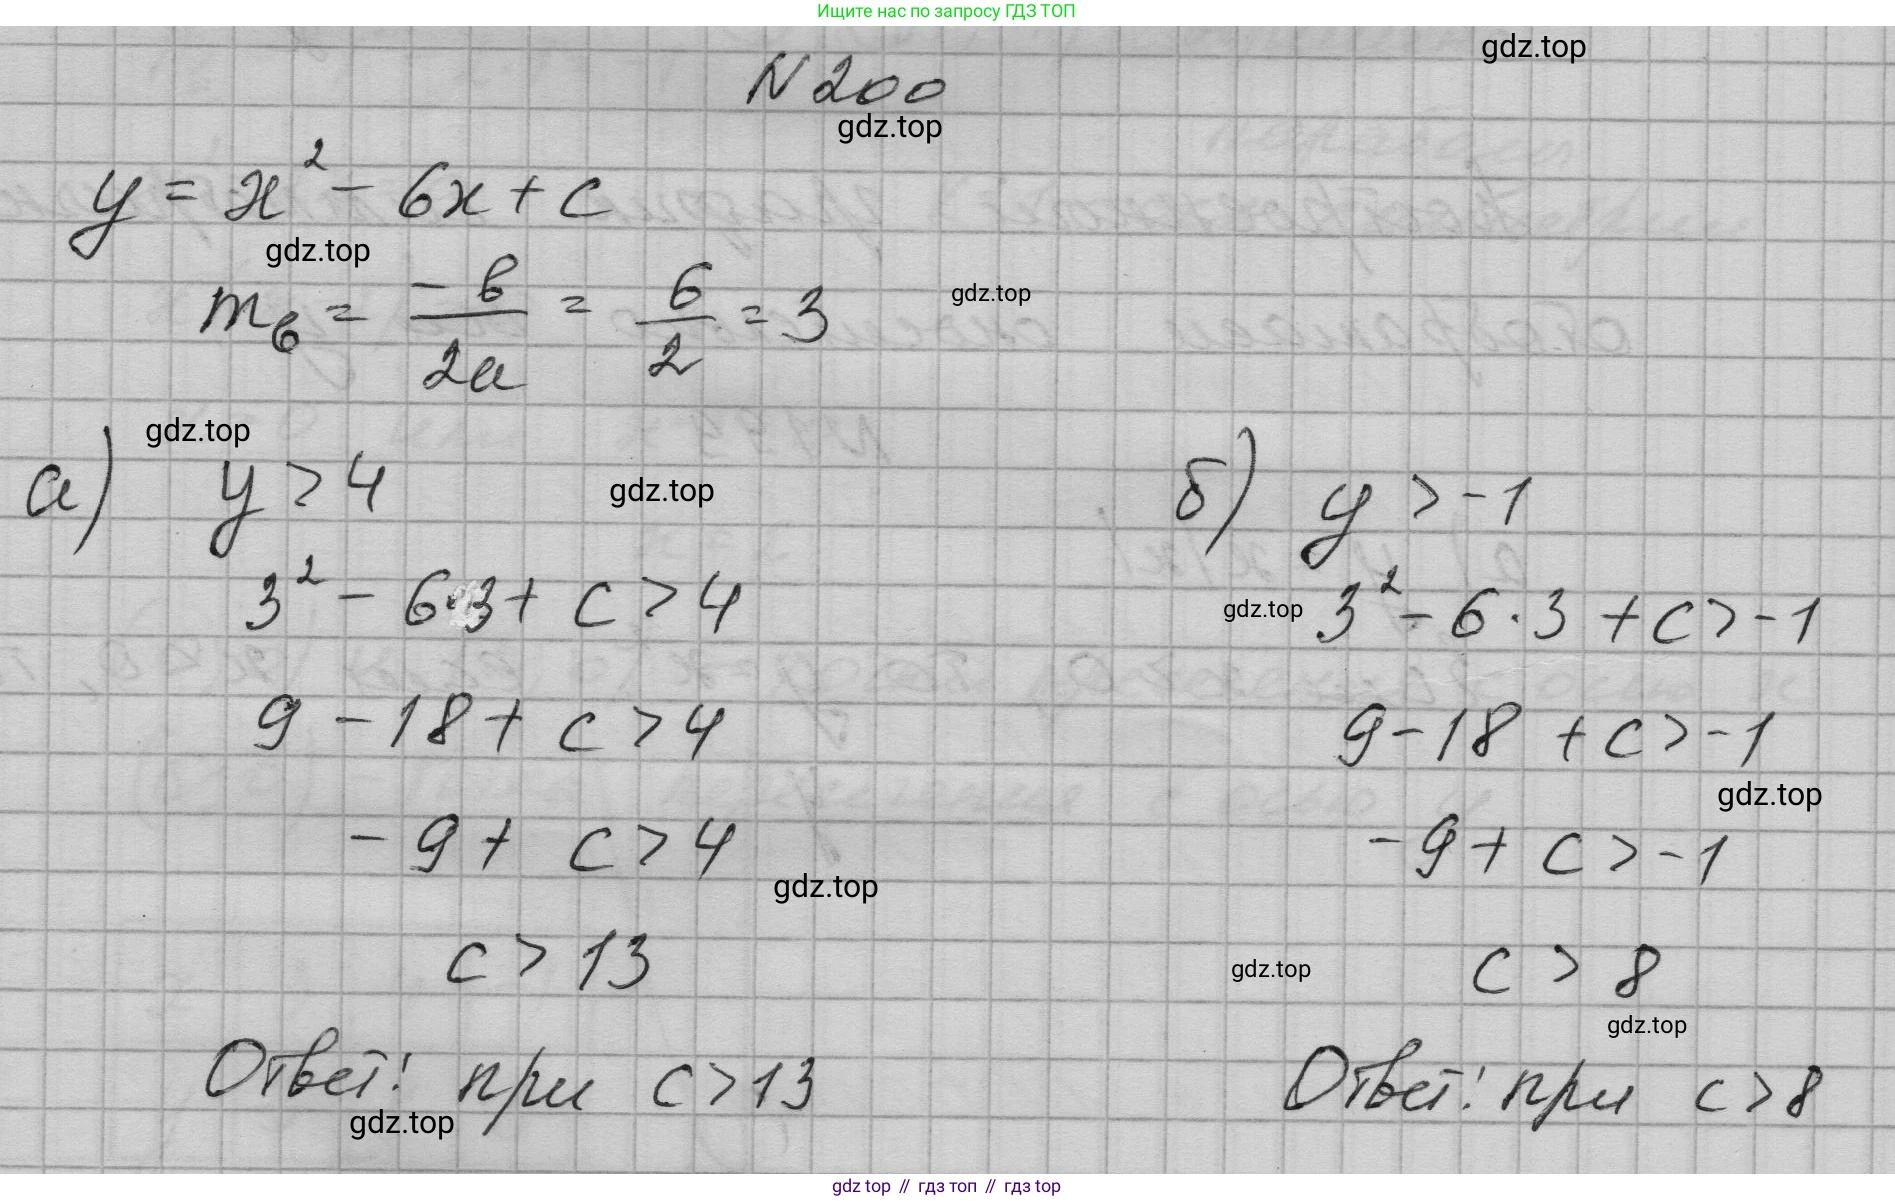 Ищите нас по запросу ГДЗ ТОП
gdz.top
N 200
gdz.top
y = x² - 6x + c
gdz.top
m_в = -в/2a = 6/2 = 3
gdz.top
gdz.top
а) y > 4
gdz.top
3² - 6·3 + c > 4
9 - 18 + c > 4
-9 + c > 4
gdz.top
c > 13
Ответ: при c > 13
gdz.top
б) y > -1
gdz.top
3² - 6·3 + c > -1
9 - 18 + c > -1
gdz.top
-9 + c > -1
gdz.top
c > 8
gdz.top
Ответ: при c > 8
gdz top // гдз топ // gdz top